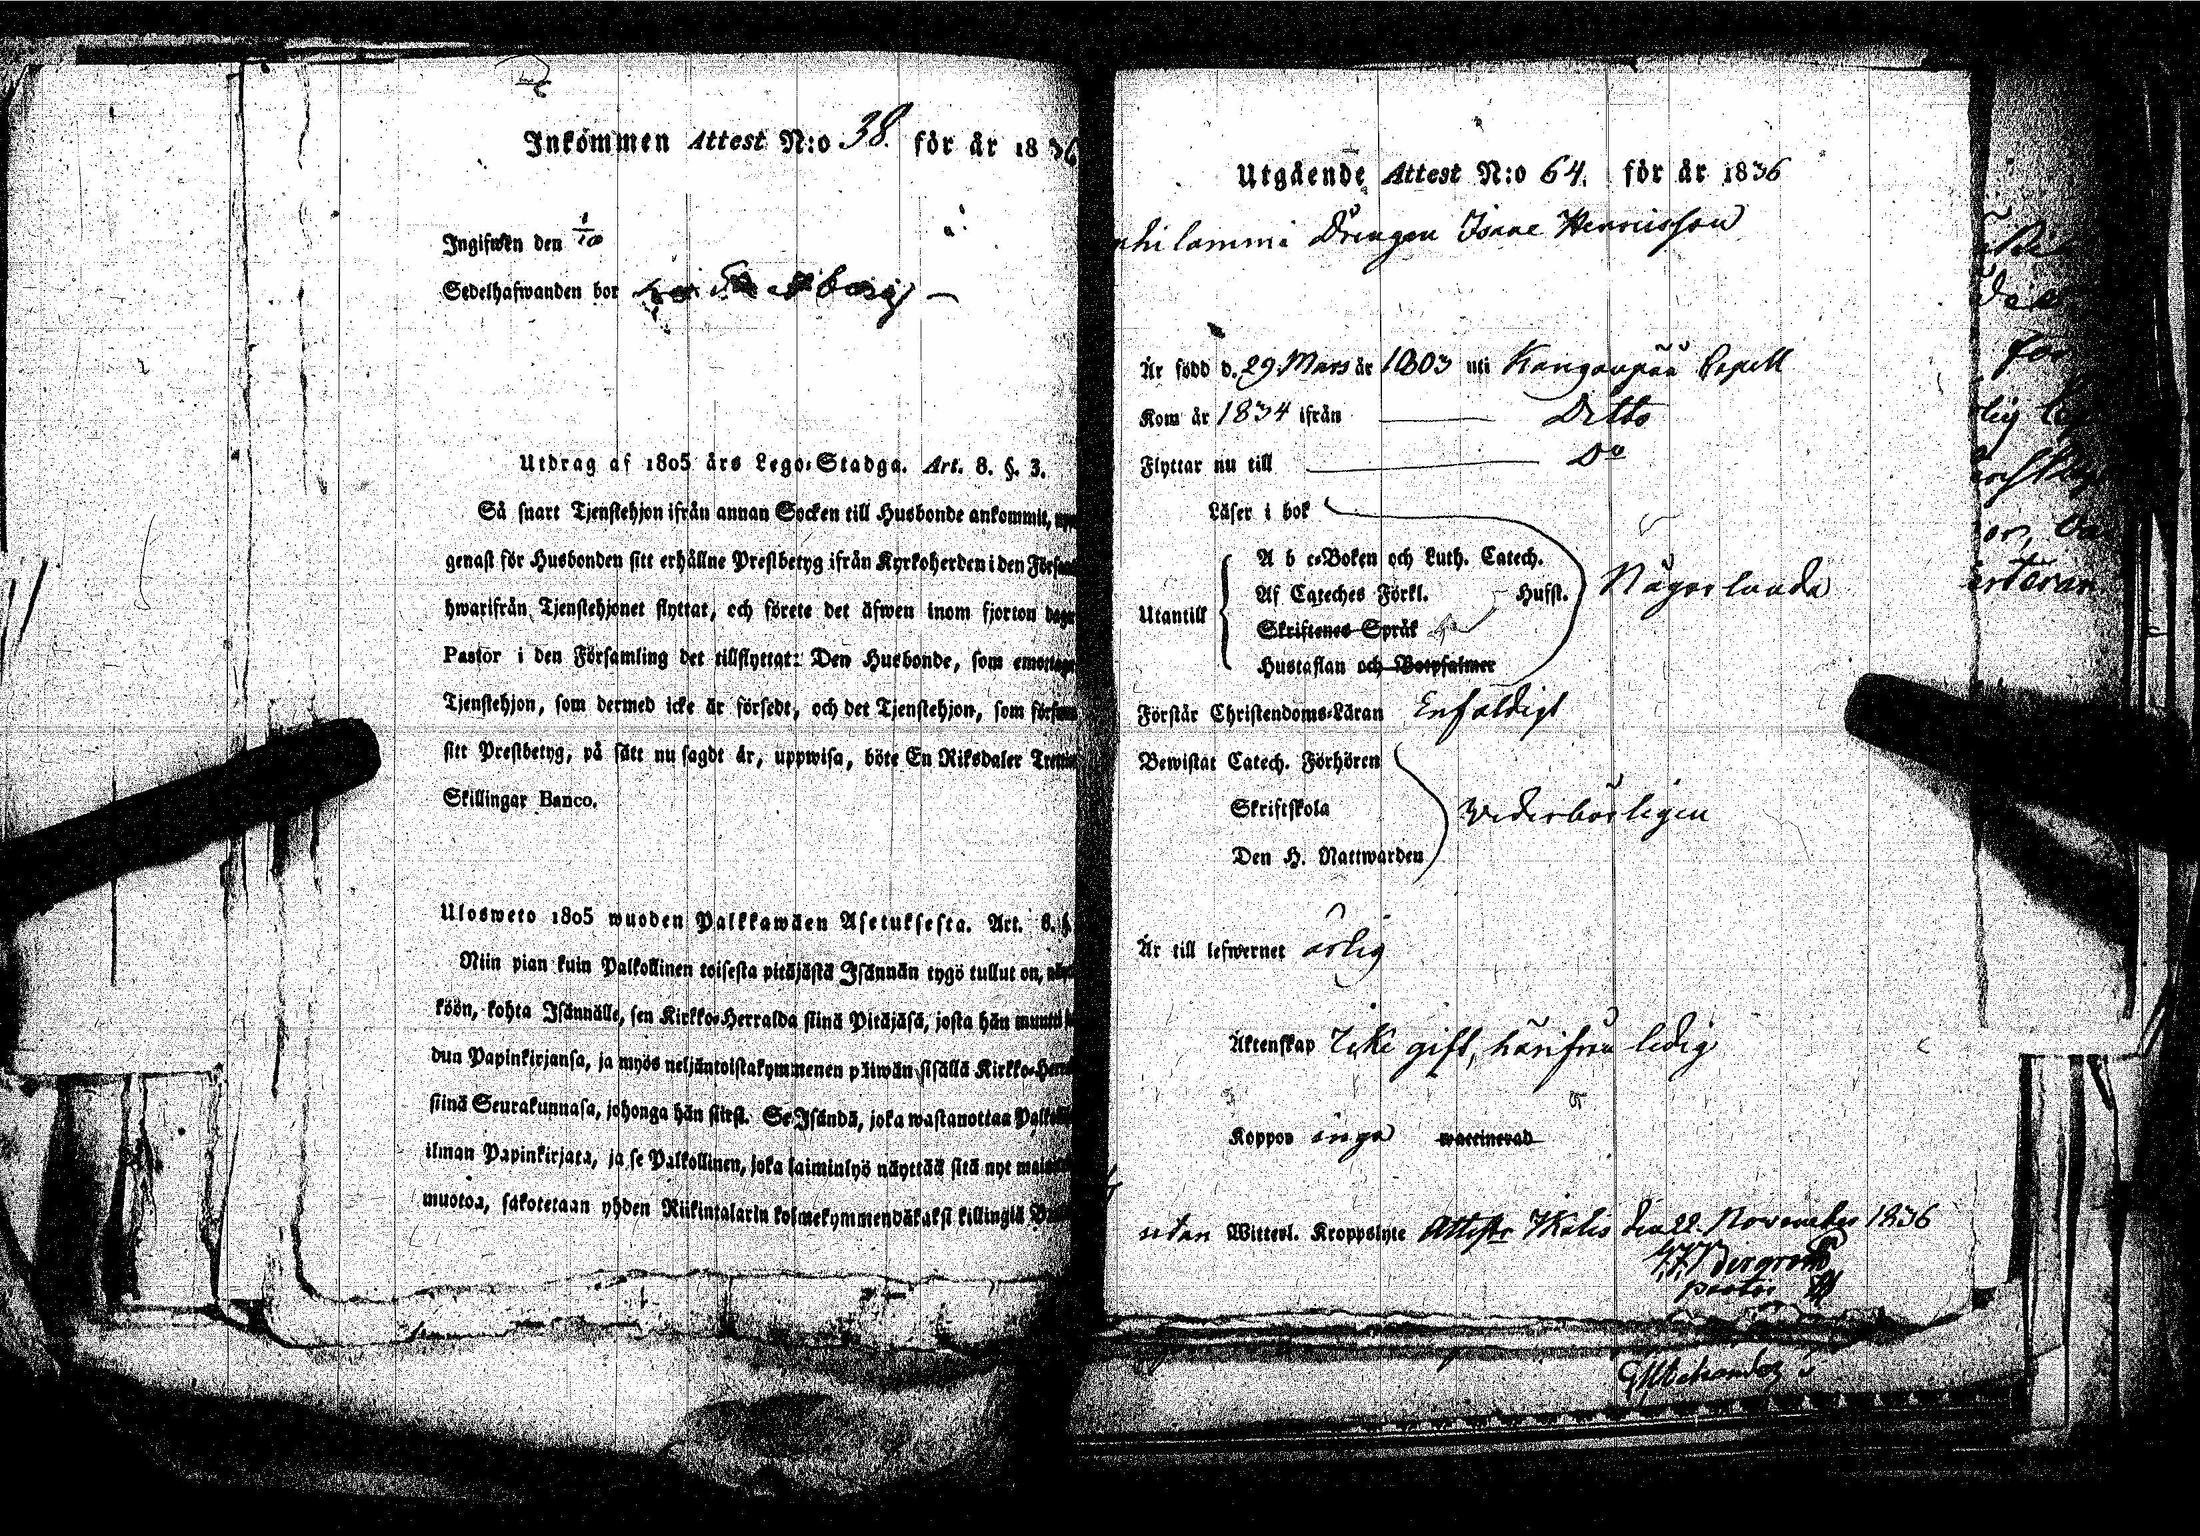 Inkommen Attest N:o 38. för år 1836
Ingifwen den 1/10
Sedelhafwanden bor
Utdrag af 1805 års Lego-Stadga. Art. 8. §. 3.
Så snart Tjenstehjon ifrån annan Socken till Husbonde ankommit,
genast för Husbonden sitt erhållne Prestbetyg ifrån Kyrkoherden i den
hwarifrån Tjenstehjonet flyttat, och förete det äfwen inom fjorton
Pastor i den Församling det tillflyttat: Den Husbonde, som
Tjenstehjon, som dermed icke är försedt, och det Tjenstehjon, som
sitt Prestbetyg, på sätt nu sagdt är, uppwisa, böte En Riksdaler
Skillingar Banco.
Ulosweto 1805 wuoden Palkkawäen Asetuksesta. Art. 8. §.
Niin pian kuin Palkollinen toisesta pitäjästä Isännän tygö tullut on,
köön, kohta Isännälle, sen Kirkko-Herralda siinä Pitäjäsä, josta hän
dun Papinkirjansa, ja myös neljäntoistakymmenen päiwän sisällä
siinä Seurakunnasa, johonga hän siirst. Se Isändä, joka wastanottaa
ilman Papinkirjata, ja se Palkollinen, joka laiminlyö näyttää sitä nyt
muotoa, sakotetaan yhden Riikintalarin kolmekymmendäkaksi killingiä
Utgående Attest N:o 64. för år 1836
Drengen Isaac Henricsson
Är född d. 29 Mars år 1803 uti Kangaspää Capell
Kom år 1834 ifrån Ditto
Flyttar nu till Do
Läser i bok
A b c-Boken och Luth. Catech.
Af Cateches Förkl. Husfl.
Utantill Skriftenes Språk
Hustaflan och Botpsalmer
Någorlunda
Förstår Christendoms-Läran Enfaldigt
Bewistat Catech. Förhören
Skriftskola
Den H. Nattwarden
Vederbörligen
Är till lefwernet ärlig
Äktenskap Icke gift, härifrån ledig
Koppor inga waccinerad
utan Witterl. Kroppslyte Attest. Ikalis den 22. November 1836
Pastor